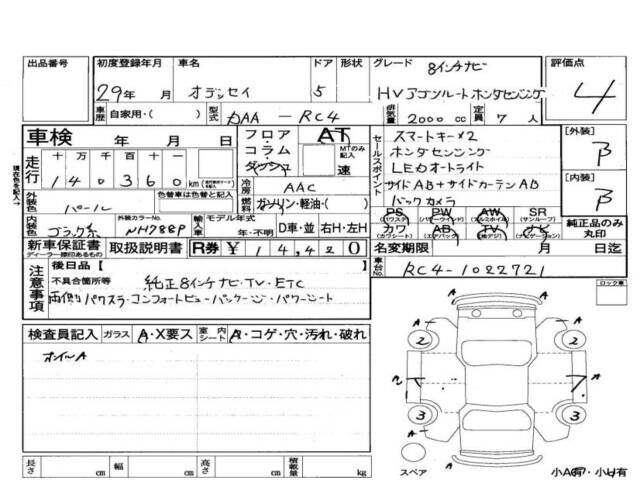 出品番号
初度登録年月
29年 月
車名
オデッセイ
ドア
5
形状
グレード
8インチナビ
HV アブソルート ホンダセンシング
評価点
4
車歴
自家用・( )
型式
DAA - RC4
排気量
2000 cc
定員
7 人
車検 年 月 日
フロア・コラム・ダッシュ
AT
MTのみ記入
速
セールスポイント
スマートキー×2
ホンダセンシング
LEDオートライト
サイドAB+サイドカーテンAB
バックカメラ
[外装]
B
[内装]
B
走行
十 万 千 百 十 一
1 4 0 3 6 0 km
冷房
AAC
燃料
ガソリン・軽油・( )
外装色
パール
色替車は色替と記入
現在色を記入
内装色
ブラック系
外装カラーNo.
NH788P
輸入車
モデル年式
年・不明
D車・並
右H・左H
PS
(パワステ)
PW
(パワーウインド)
AW
(アルミホイル)
SR
(サンルーフ)
カワ
(カワシート)
AB
(エアバック)
TV
(アナ・デジ)
ナビ
(ナビゲーション)
純正品のみ
丸印
新車保証書
ディーラー捺印あるもの
取扱説明書
R券 ¥ 14,420
名変期限 月 日迄
車台No.
RC4-1022721
注意事項
後日品 [ ]
不具合箇所等
純正8インチナビ・TV・ETC
両側パワスラ・コンフォートビューパッケージ・パワーシート
ロック車
検査員記入
ガラス
A・X要ス
室内シート
A・コゲ・穴・汚れ・破れ
ホイルA
A
A
2
2
A
A
3
3
A
A
スペア
小A有・小U有
長さ cm
幅 cm
高さ cm
積載量 kg